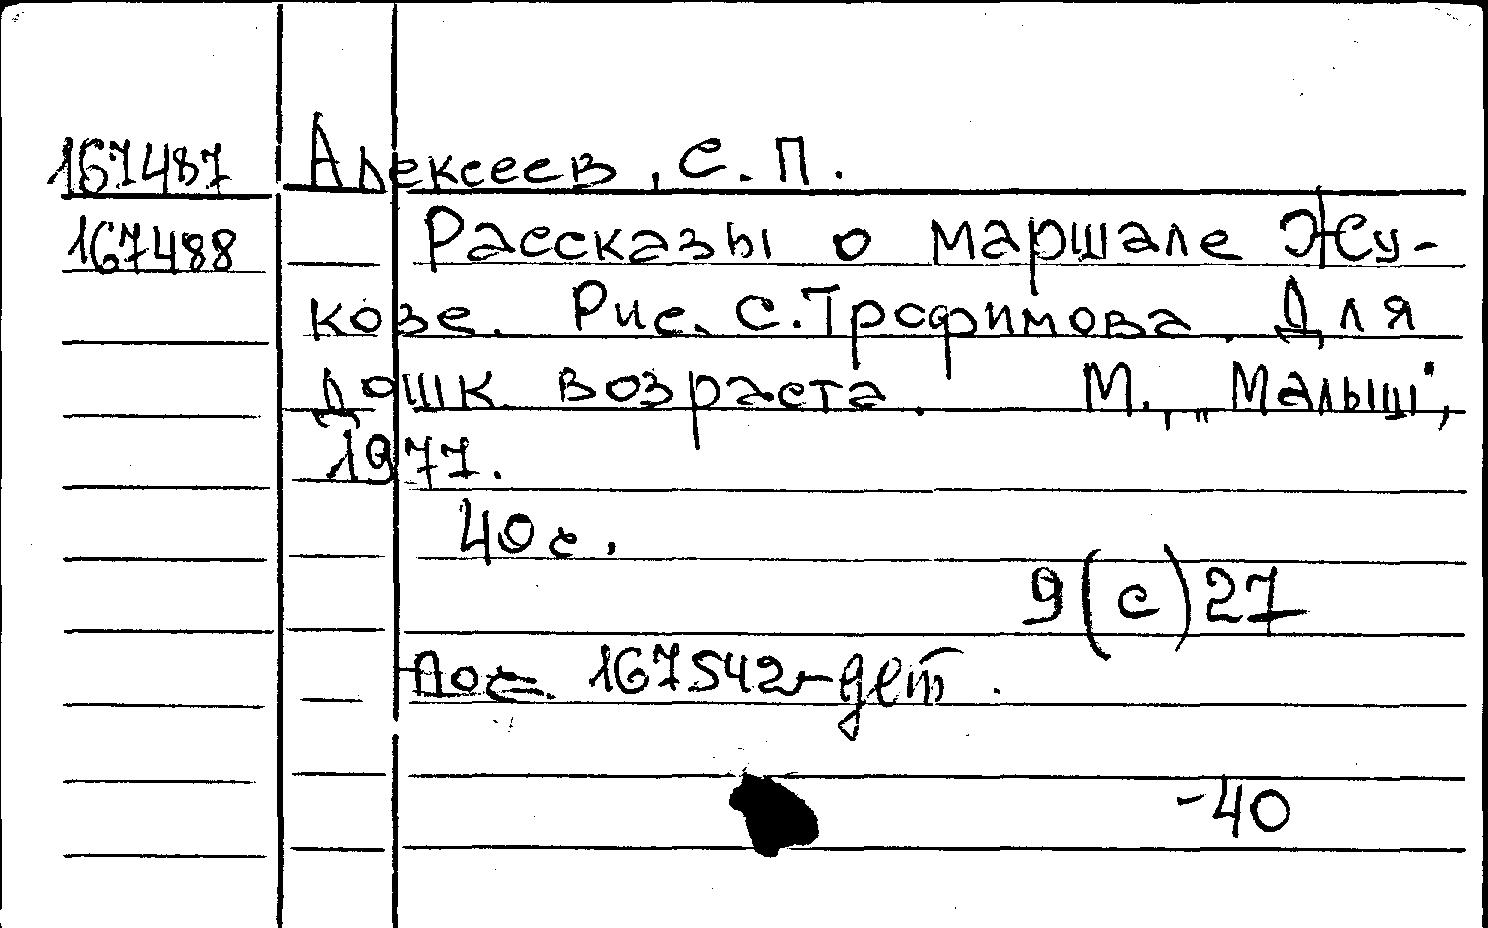 167487 Алексеев, С. П.
167488 Рассказы о маршале Жу-
кове. Рис. С. Трофимова. Для
дошк. возраста. М., „Малыш",
1977.
40 с.
9(с)27
Пос. 167542-дет.
-40